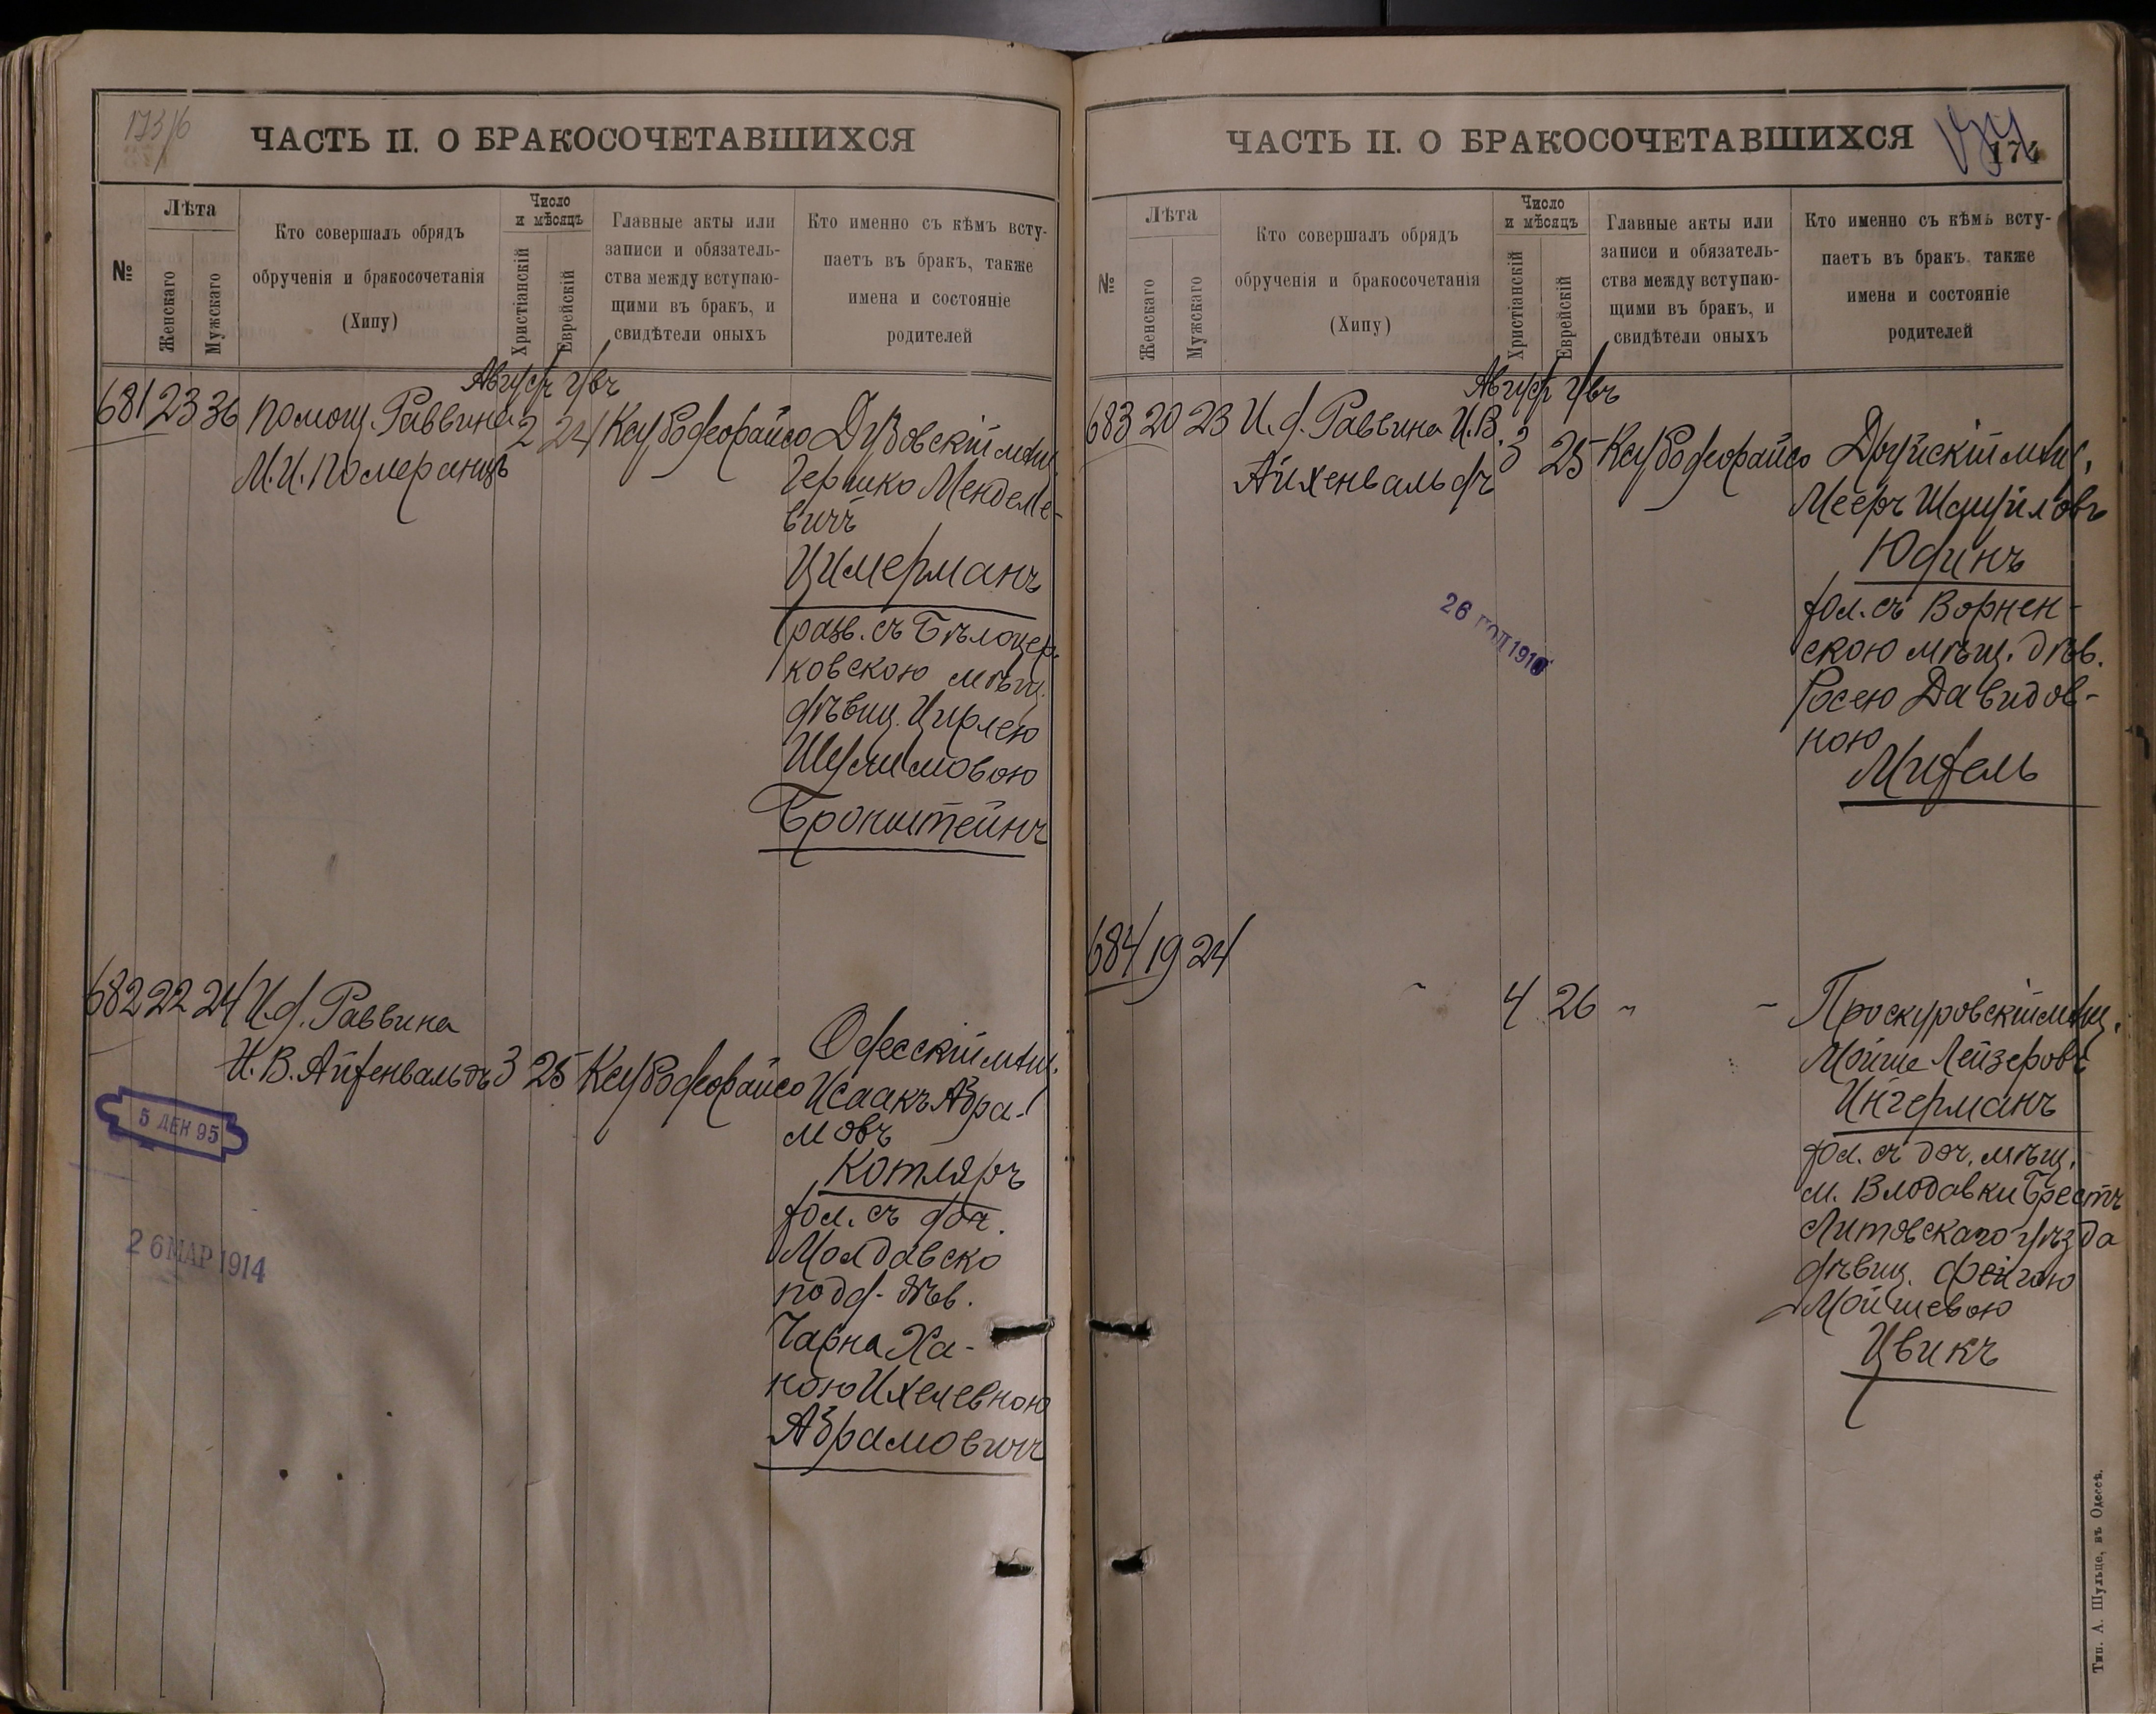 173/6
ЧАСТЬ II. О БРАКОСОЧЕТАВШИХСЯ
№
Лѣта
Женскаго
Мужскаго
Кто совершалъ обрядъ
обрученія и бракосочетанія
(Хипу)
Число
и мѣсяцъ
Христіанскій
Еврейскій
Главные акты или
записи и обязатель-
ства между вступаю-
щими въ бракъ, и
свидѣтели оныхъ
Кто именно съ кѣмъ всту-
паетъ въ бракъ, также
имена и состояніе
родителей
681 23 36 Помощ. Раввина 2 24
М. И. Померанцъ
Дубовскій мѣщ.
Гершко Менделе-
вичъ
Цимерманъ
разв. съ Бѣлоцер-
ковскою мѣщ.
дѣвиц. Цирлею
Шулимовою
Бронштейнъ
682 22 24 И. д. Раввина
И. В. Айхенвальдъ 3 25
Одесскій мѣщ.
Исаакъ Абра-
мовъ
Котляръ
хол. съ доч.
Молдавско
подд. дѣв.
Чарна Ха-
ною Ихелевною
Абрамовичъ
5 ДЕН 95
26 МАР 1914
ЧАСТЬ II. О БРАКОСОЧЕТАВШИХСЯ
174
№
Лѣта
Женскаго
Мужскаго
Кто совершалъ обрядъ
обрученія и бракосочетанія
(Хипу)
Число
и мѣсяцъ
Христіанскій
Еврейскій
Главные акты или
записи и обязатель-
ства между вступаю-
щими въ бракъ, и
свидѣтели оныхъ
Кто именно съ кѣмъ всту-
паетъ въ бракъ, также
имена и состояніе
родителей
683 20 23 И. д. Раввина И. В. 3 25
Айхенвальдъ
Друйскій мѣщ.
Мееръ
Юдинъ
хол. съ Ворнен-
скою мѣщ. дѣв.
Росею Давидов-
ною
Михель
684 19 24
4 26
Проскуровскій мѣщ.
Мойше Лейзеровъ
Ингерманъ
хол. съ доч. мѣщ.
м. Влодавки Брестъ
Литовскаго уѣзда
дѣвиц. Фейгою
Мойшевою
Цвикъ
Тип. А. Шульце, въ Одессѣ.